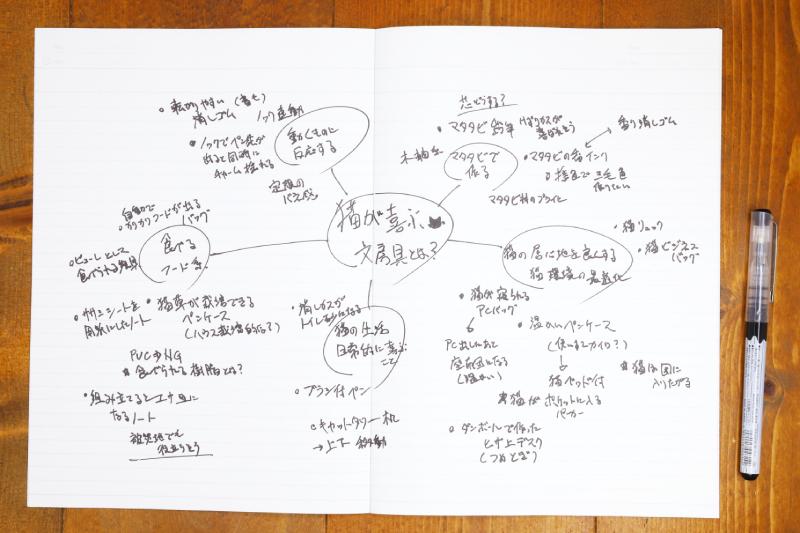 猫が喜ぶ
文房具とは?
動くものに
反応する
転がりやすい(音も)
消しゴム
ノック連動
ノックでペン先が
出ると同時に
チャーム揺れる
定規の
バネ感
食べる
フード系
自動で
カリカリフードが出る
バッグ
ピューレとして
食べられる
用紙にしたノート
猫草が栽培できる
ペンケース
(ハウス栽培的な?)
PVCがNG
食べられる樹脂とは?
組み立てるとエサ皿に
なるノート
被災地でも
役立ちそう
猫の生活
日常的に喜ぶ
こと
消しカスが
トイレ砂になる
ブラシ付ペン
キャットタワー机
→上下
マタタビで
作る
芯どうする?
マタタビ鉛筆
けずりカスが
喜ばれそう
木軸も
マタタビの香インク
香り消しゴム
三毛色
作りたい
猫の居心地を良くする
猫環境の最適化
猫リュック
猫ビジネス
バッグ
猫が寝られる
PCバッグ
PC出したあと
座布団になる
(温かい)
温かいペンケース
(使いすてカイロ?)
猫ベッド付
猫がポケットに入る
パーカー
猫は図に
入りたがる
ダンボールで作った
ヒザ上デスク
(つめとぎ)